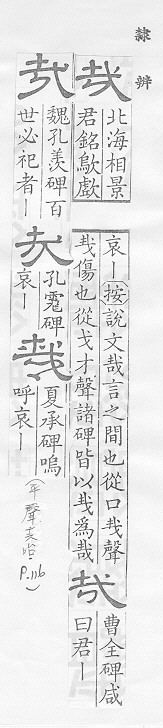 隸辨
𢦏
北海相景
君銘歍戲
哀丨按說文哉言之間也從口𢦏聲
𢦏傷也從戈才聲諸碑皆以𢦏為哉
𢦏
曹全碑咸
曰君丨
𢦏
魏孔羨碑百
世必祀者丨
孔碑
哀丨
哉
夏承碑嗚
呼哀丨
(平聲 P.116)